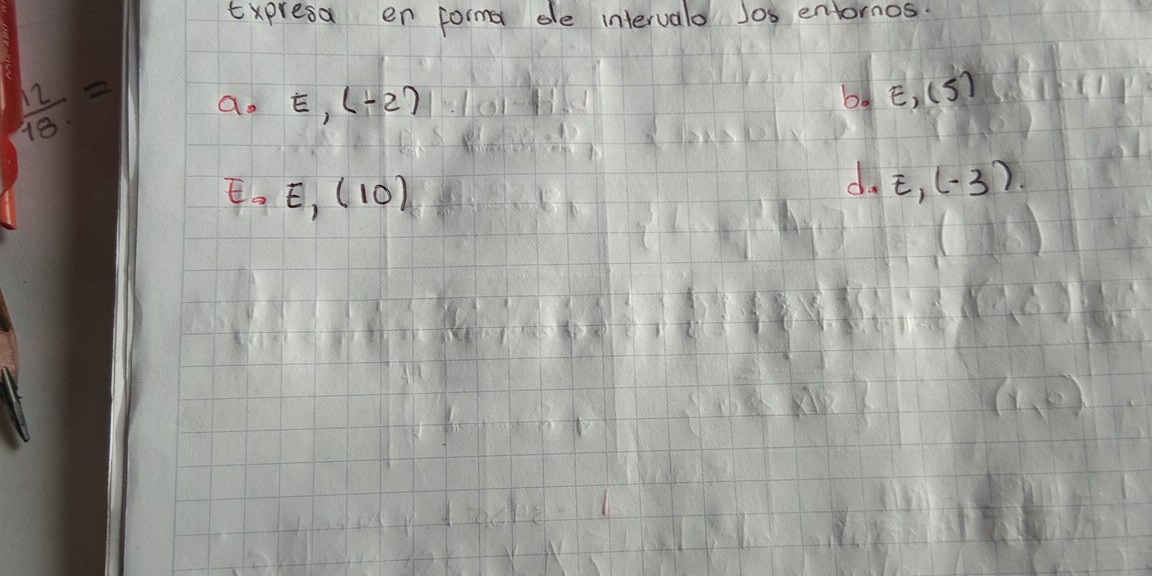 Expresa en forma de intervalo los entornos.
12/18. =
a. E, (-2) b. E, (5)
E. E, (10) d. E, (-3).